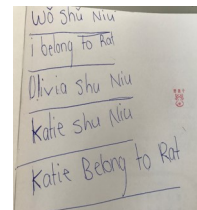 Wǒ Shǔ Niú
i belong to Rat
Olivia Shu Niu
Katie Shu Niu
Katie Belong to Rat